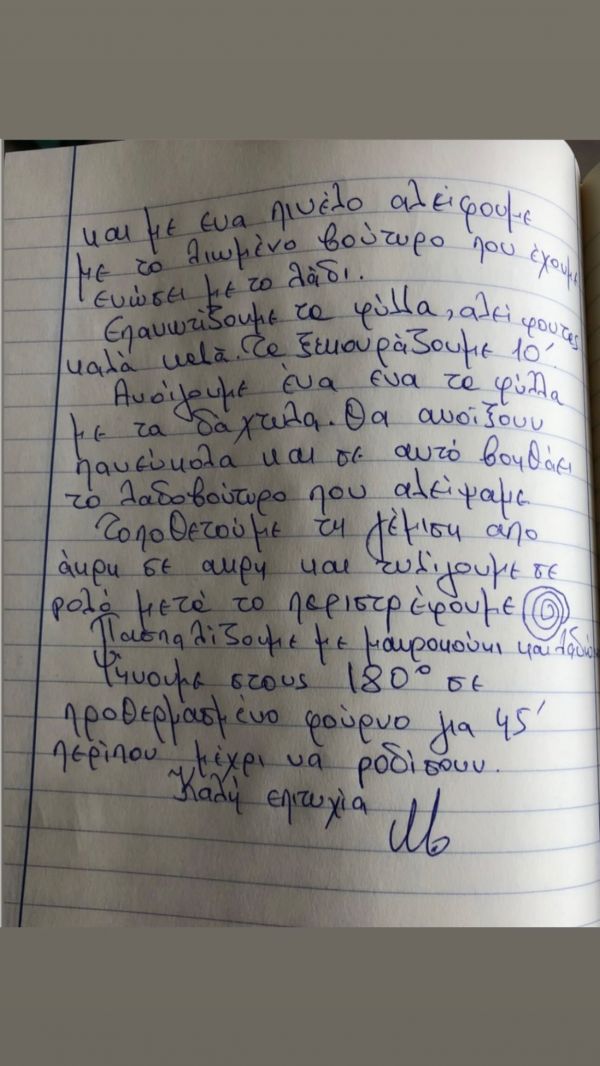 και με ενα πινέλο αλείφουμε
με το λιωμένο βούτυρο που έχουμε
ενώσει με το λάδι.
Επανωτίζουμε τα φύλλα, αλείφοντες
καλά μετά. Το ξεκουράζουμε 10'.
Ανοίγουμε ένα ένα τα φύλλα
με τα δάχτυλα. Θα ανοίξουν
πανεύκολα και σε αυτό βοηθάει
το λαδοβούτυρο που αλείψαμε
Τοποθετούμε τη γέμιση απο
άκρη σε ακρη και τυλίγουμε σε
ρολό μετά το περιστρέφουμε
Πασπαλίζουμε με μαυροκούκι και λαδι
Ψήνουμε στους 180° σε
προθερμασμένο φούρνο για 45'
περίπου μέχρι να ροδίσουν.
Καλή επιτυχία